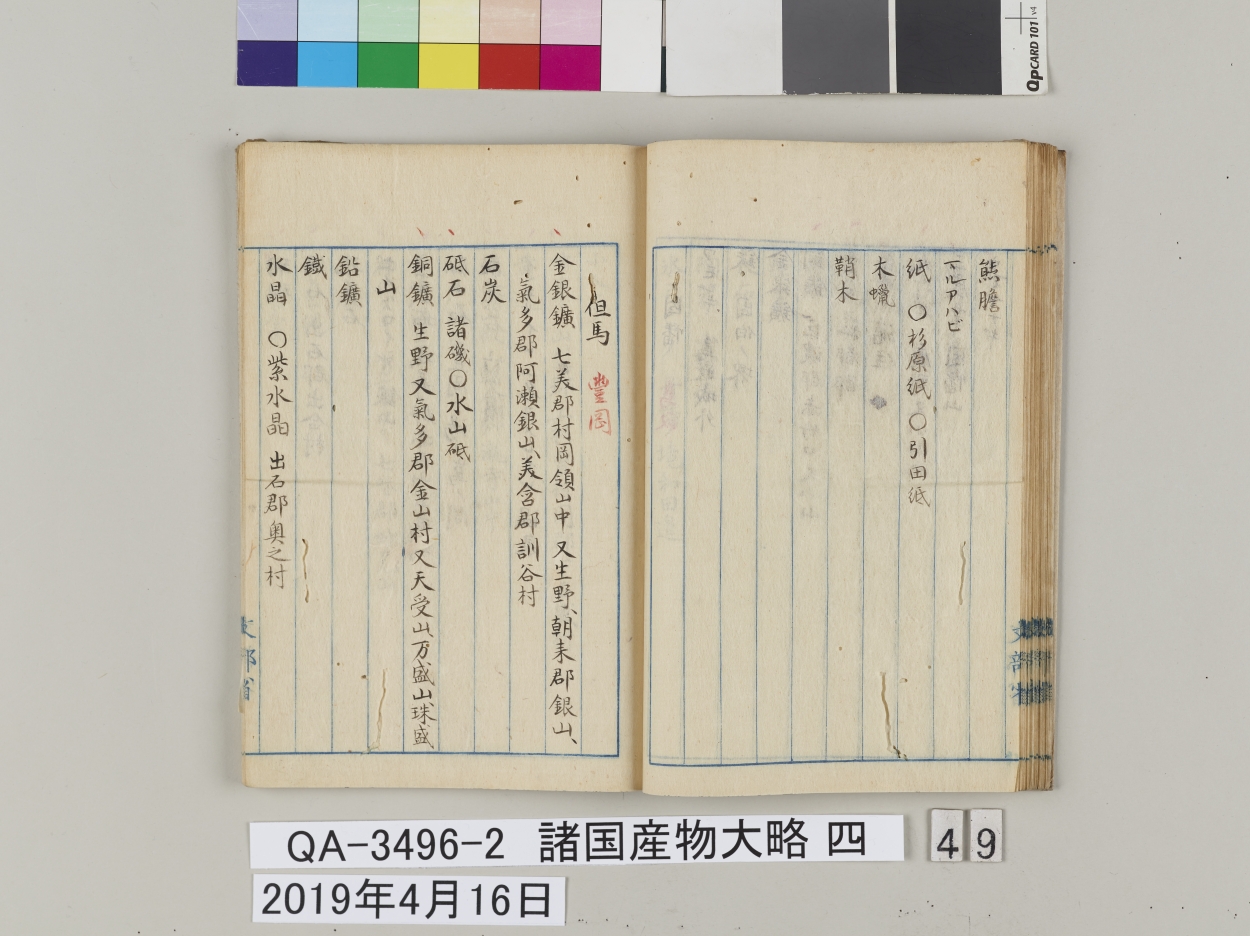 QPCARD 101 v4
熊膽
マルアハビ
紙　〇杉原紙　〇引田紙
木蠟
鞘木
文部省
但馬　豐岡
金銀鑛　七美郡村岡領山中　又生野、朝来郡銀山、
氣多郡阿瀬銀山、美含郡訓谷村
石炭
砥石　諸磯〇水山砥
銅鑛　生野又氣多郡金山村又天受山、万盛山、珠盛
山
鉛鑛
鐵
水晶　〇紫水晶　出石郡奥之村
文部省
QA-3496-2　諸国産物大略 四
49
2019年4月16日